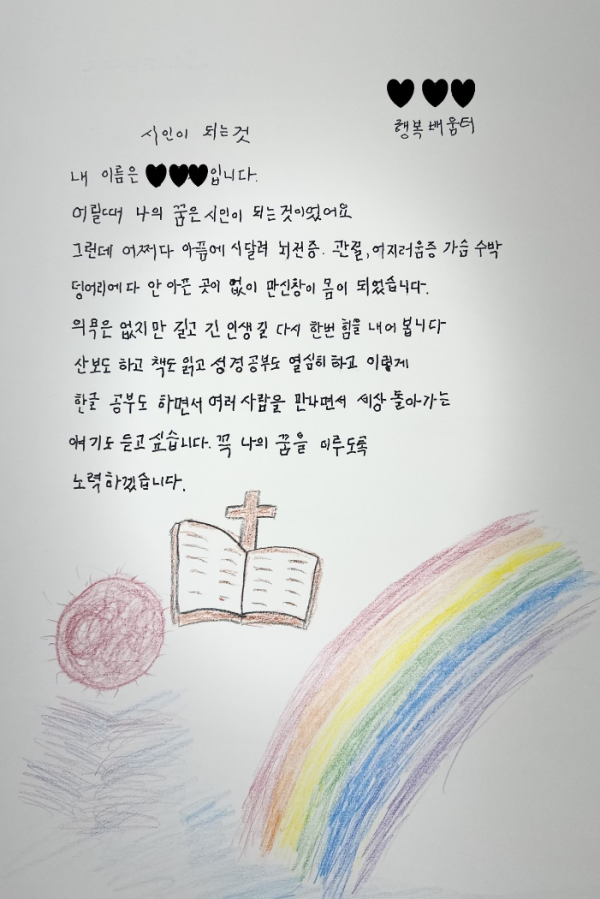 행복 배움터
시인이 되는것
내 이름은 입니다.
어릴때 나의 꿈은 시인이 되는것이었어요
그런데 어쩌다 아픔에 시달려 뇌전증. 관절, 어지러움증 가슴 수박
덩어리에 다 안 아픈 곳이 없이 만신창이 몸이 되었습니다.
의욕은 없지만 길고 긴 인생길 다시 한번 힘을 내어 봅니다
산보도 하고 책도 읽고 성경공부도 열심히 하고 이렇게
한글 공부도 하면서 여러 사람을 만나면서 세상 돌아가는
얘기도 듣고 싶습니다. 꼭 나의 꿈을 이루도록
노력하겠습니다.